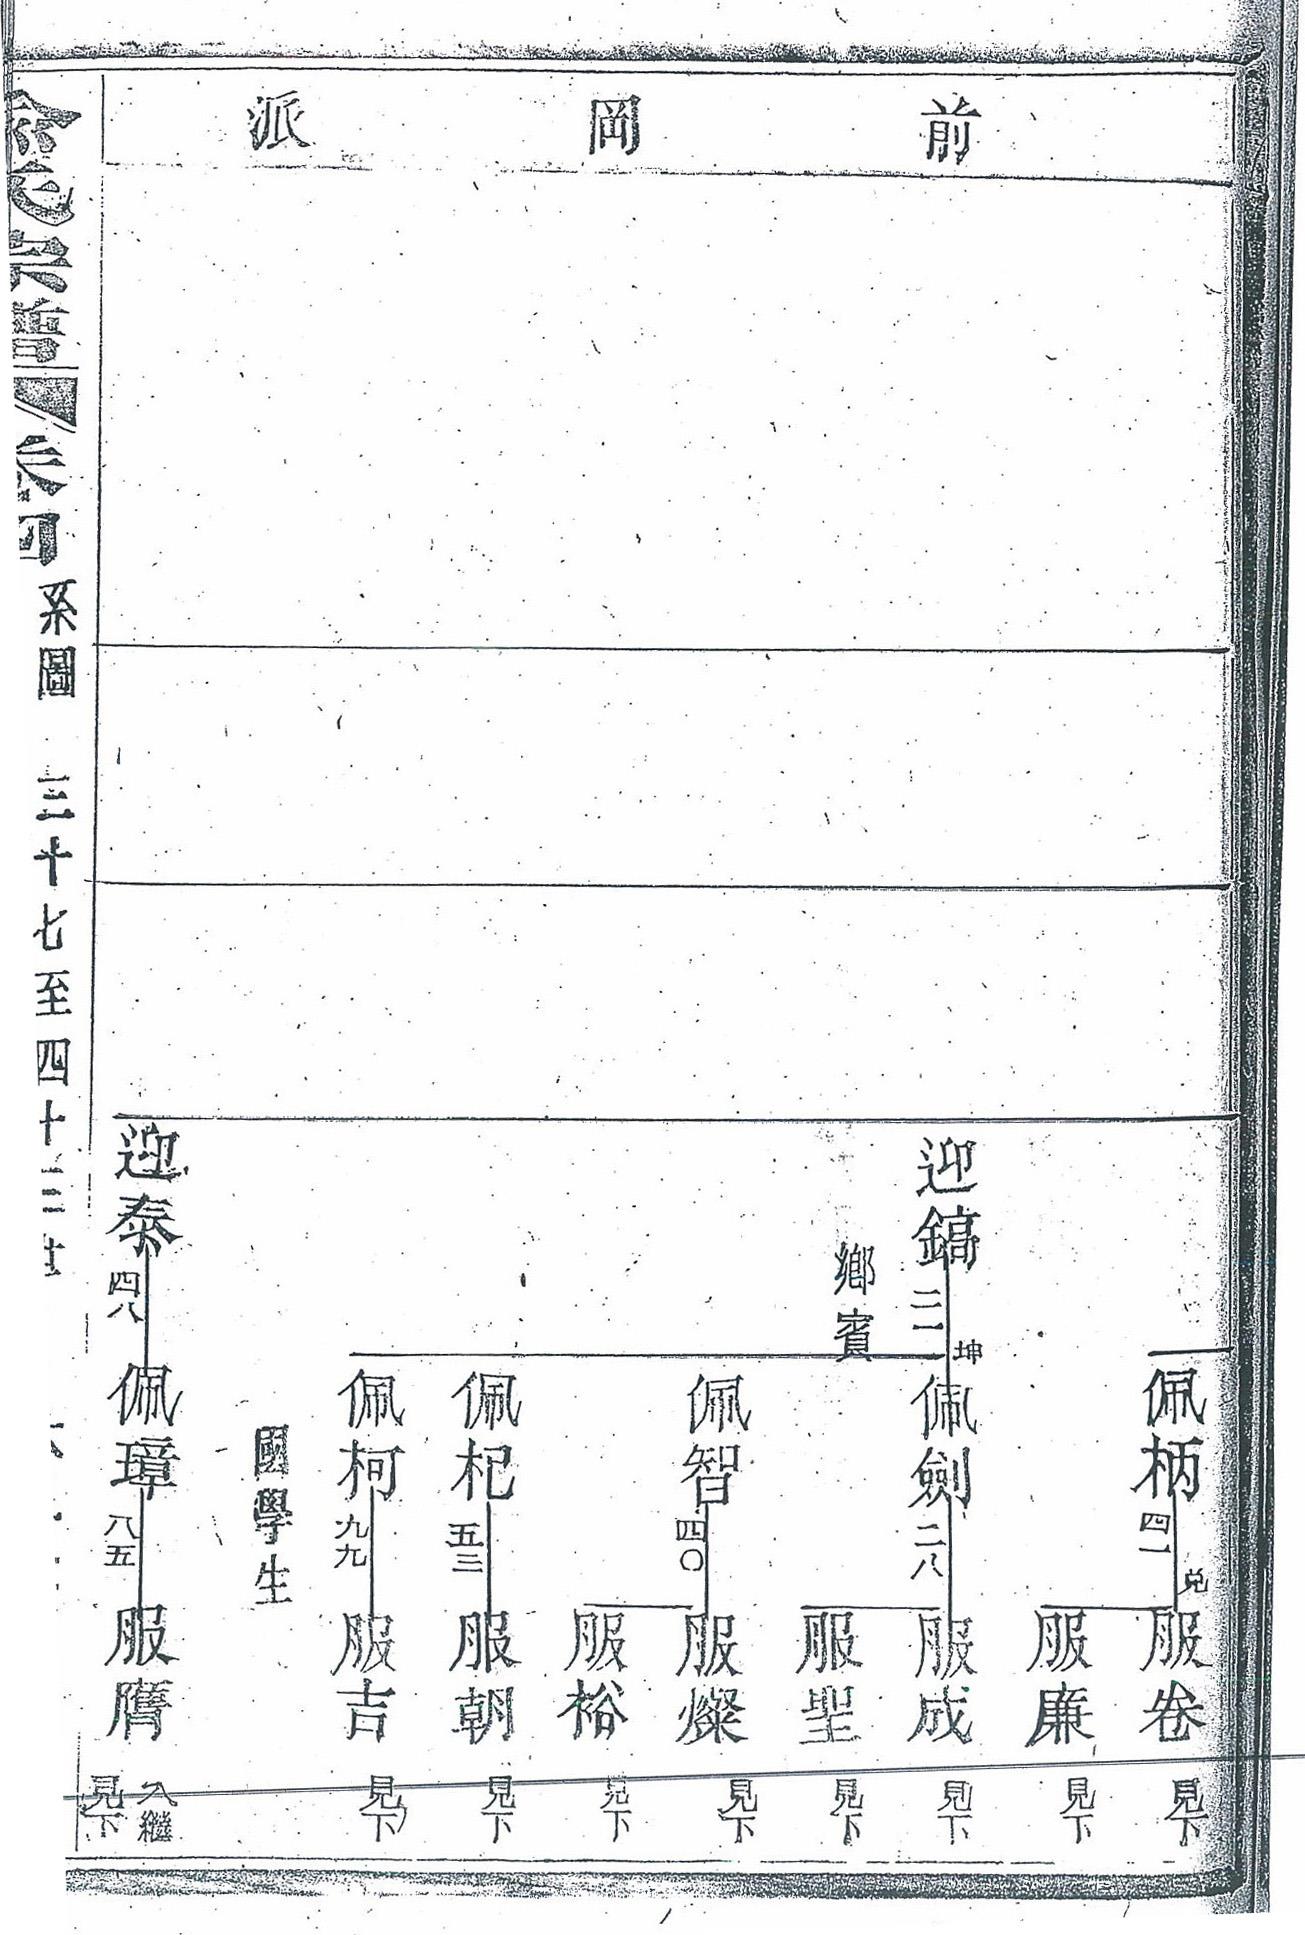 前岡派
佩柄
四一
兑
服卷
見下
服廉
見下
迎鎬
二一
坤
鄉賓
佩劍
二八
服成
見下
服聖
見下
佩智
四〇
服燦
見下
服裕
見下
佩杞
五三
服朝
見下
佩柯
九九
國學生
服吉
見下
迎泰
四八
佩璋
八五
服膺
入繼
見下
氏宗譜
卷四
系圖
三十七至四十三世